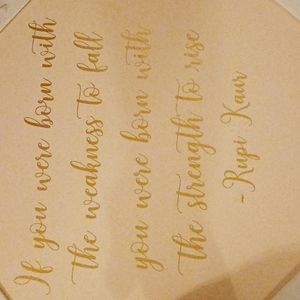 If you were born with
the weakness to fall
you were born with
the strength to rise
~ Rupi Kaur